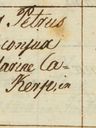 Petrus
conjux
tarine Ca-
Kerse, in